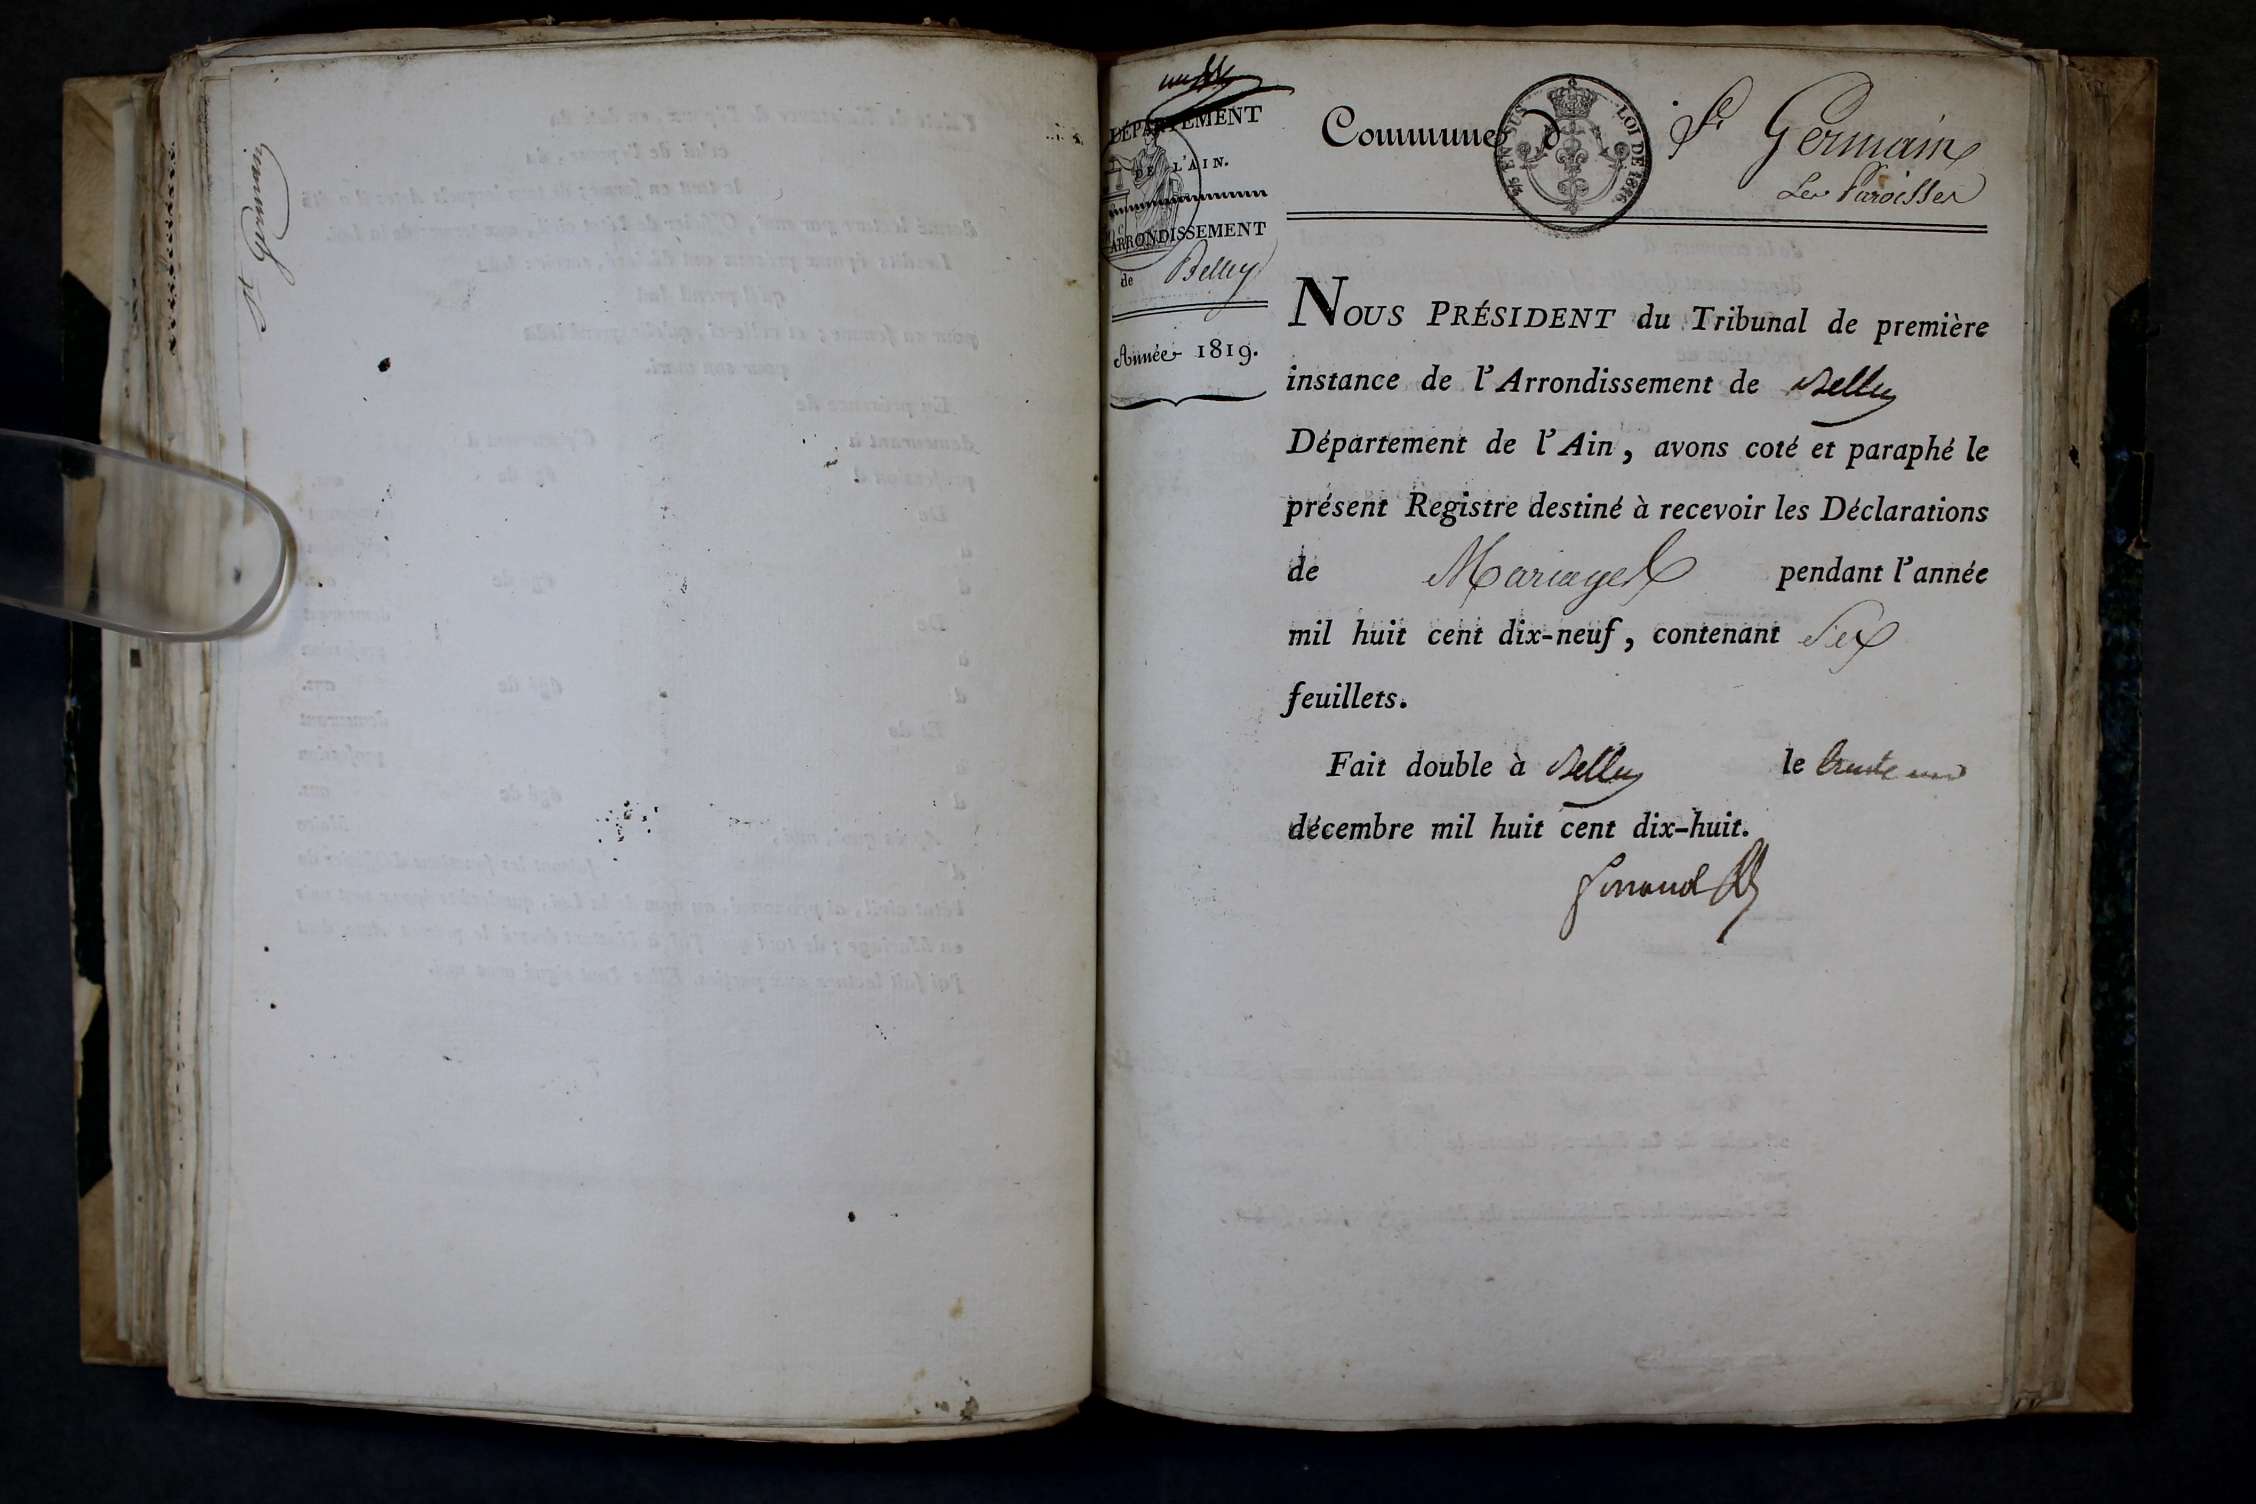 St Germain
DÉPARTEMENT
DE L'AIN.
ARRONDISSEMENT
de Belley
Année 1819.
Commune d St Germain
Les Paroisses
EN SUS
LOI DE 1816.
NOUS PRÉSIDENT du Tribunal de première
instance de l'Arrondissement de Belley
Département de l'Ain, avons coté et paraphé le
présent Registre destiné à recevoir les Déclarations
de Mariages pendant l'année
mil huit cent dix-neuf, contenant Six
feuillets.
Fait double à Belley le trente un
décembre mil huit cent dix-huit.